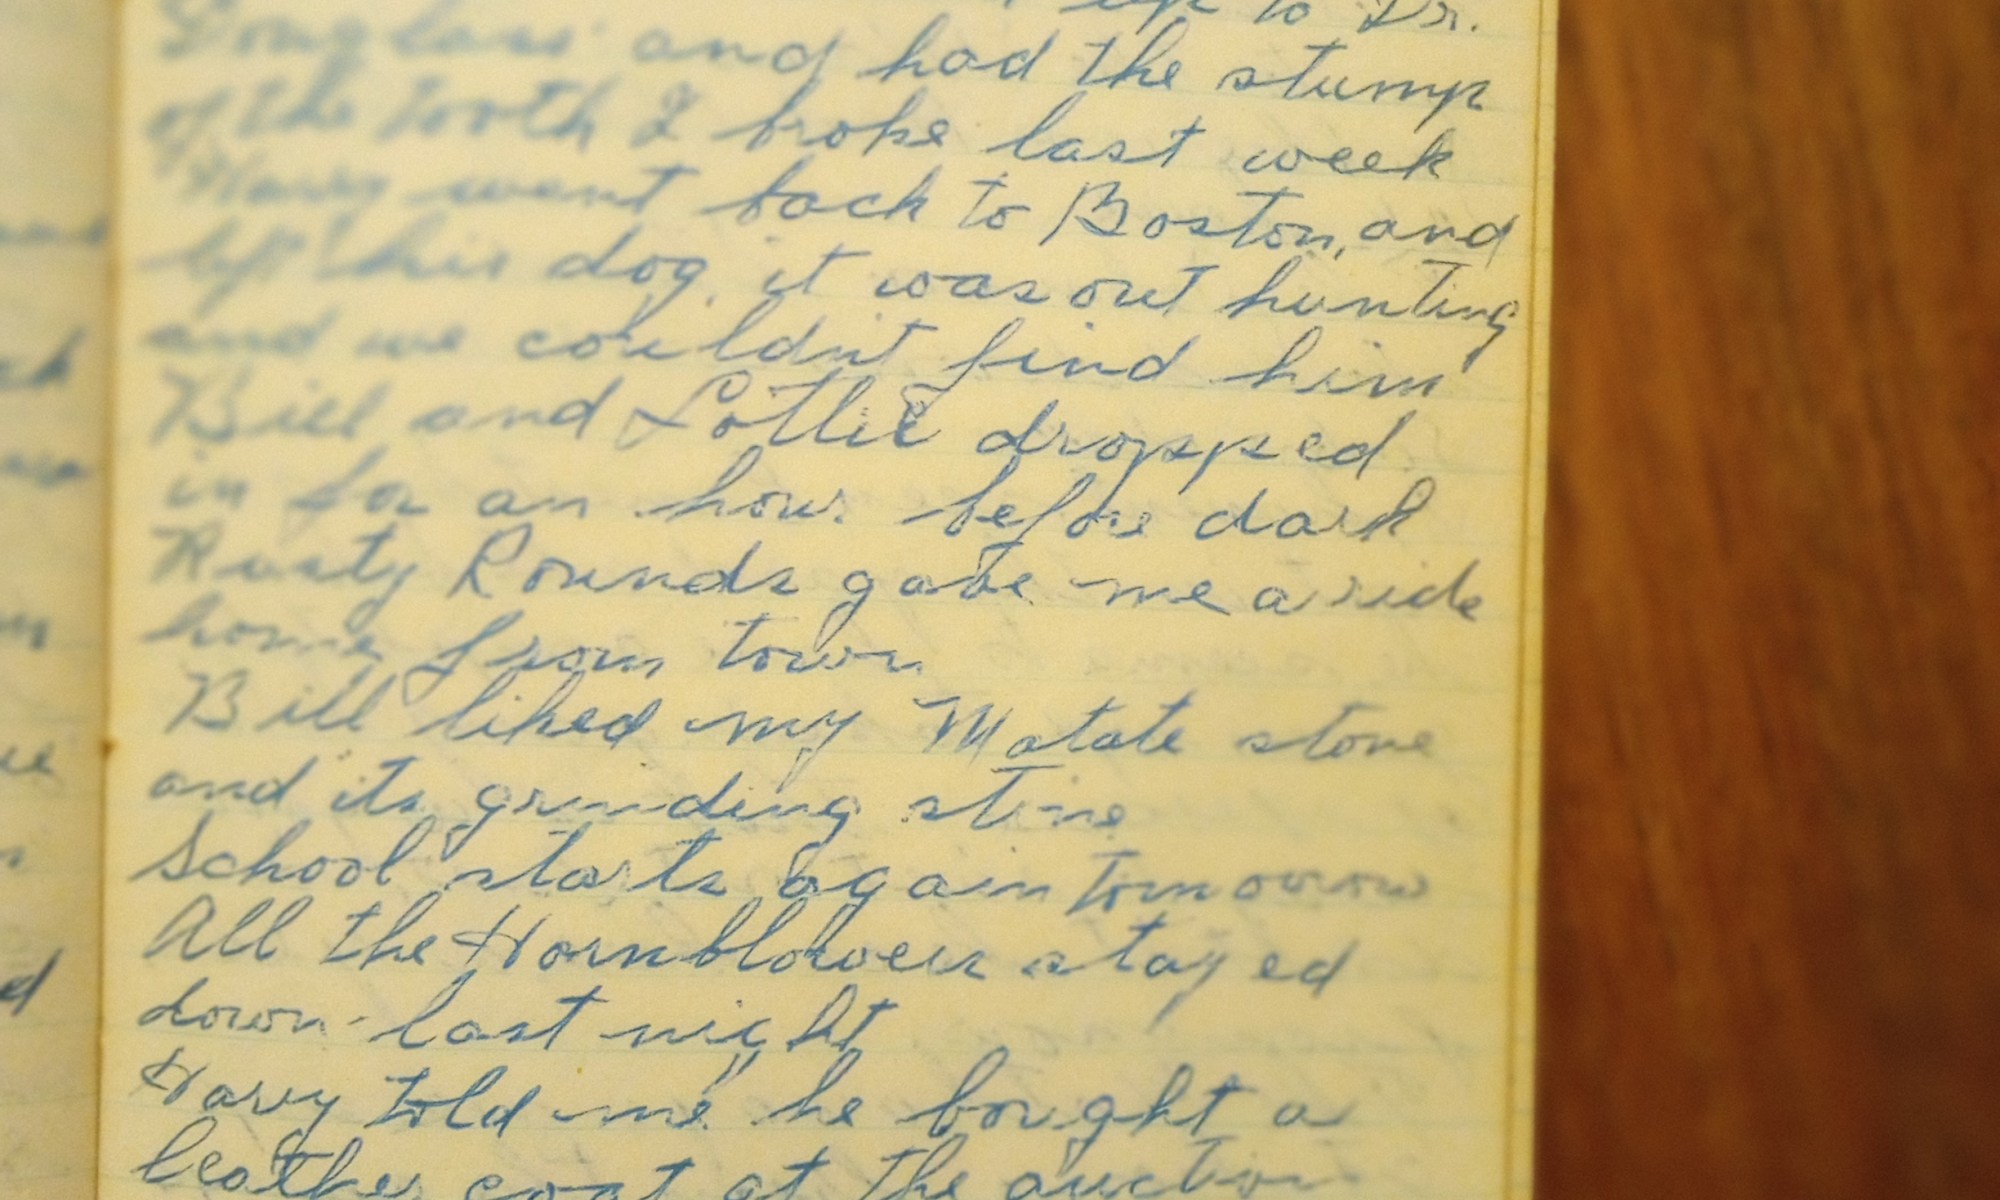 up to Dr.
Douglass and had the stump
of the tooth I broke last week
Harry went back to Boston, and
left his dog, it was out hunting
and we couldn't find him
Bill and Lottie dropped
in for an hour before dark
Rusty Rounds gave me a ride
home from town
Bill liked my Matate stone
and its grinding stone
School starts again tomorrow
All the Hornblowers stayed
down last night
Harry told me he bought a
leather coat at the auction